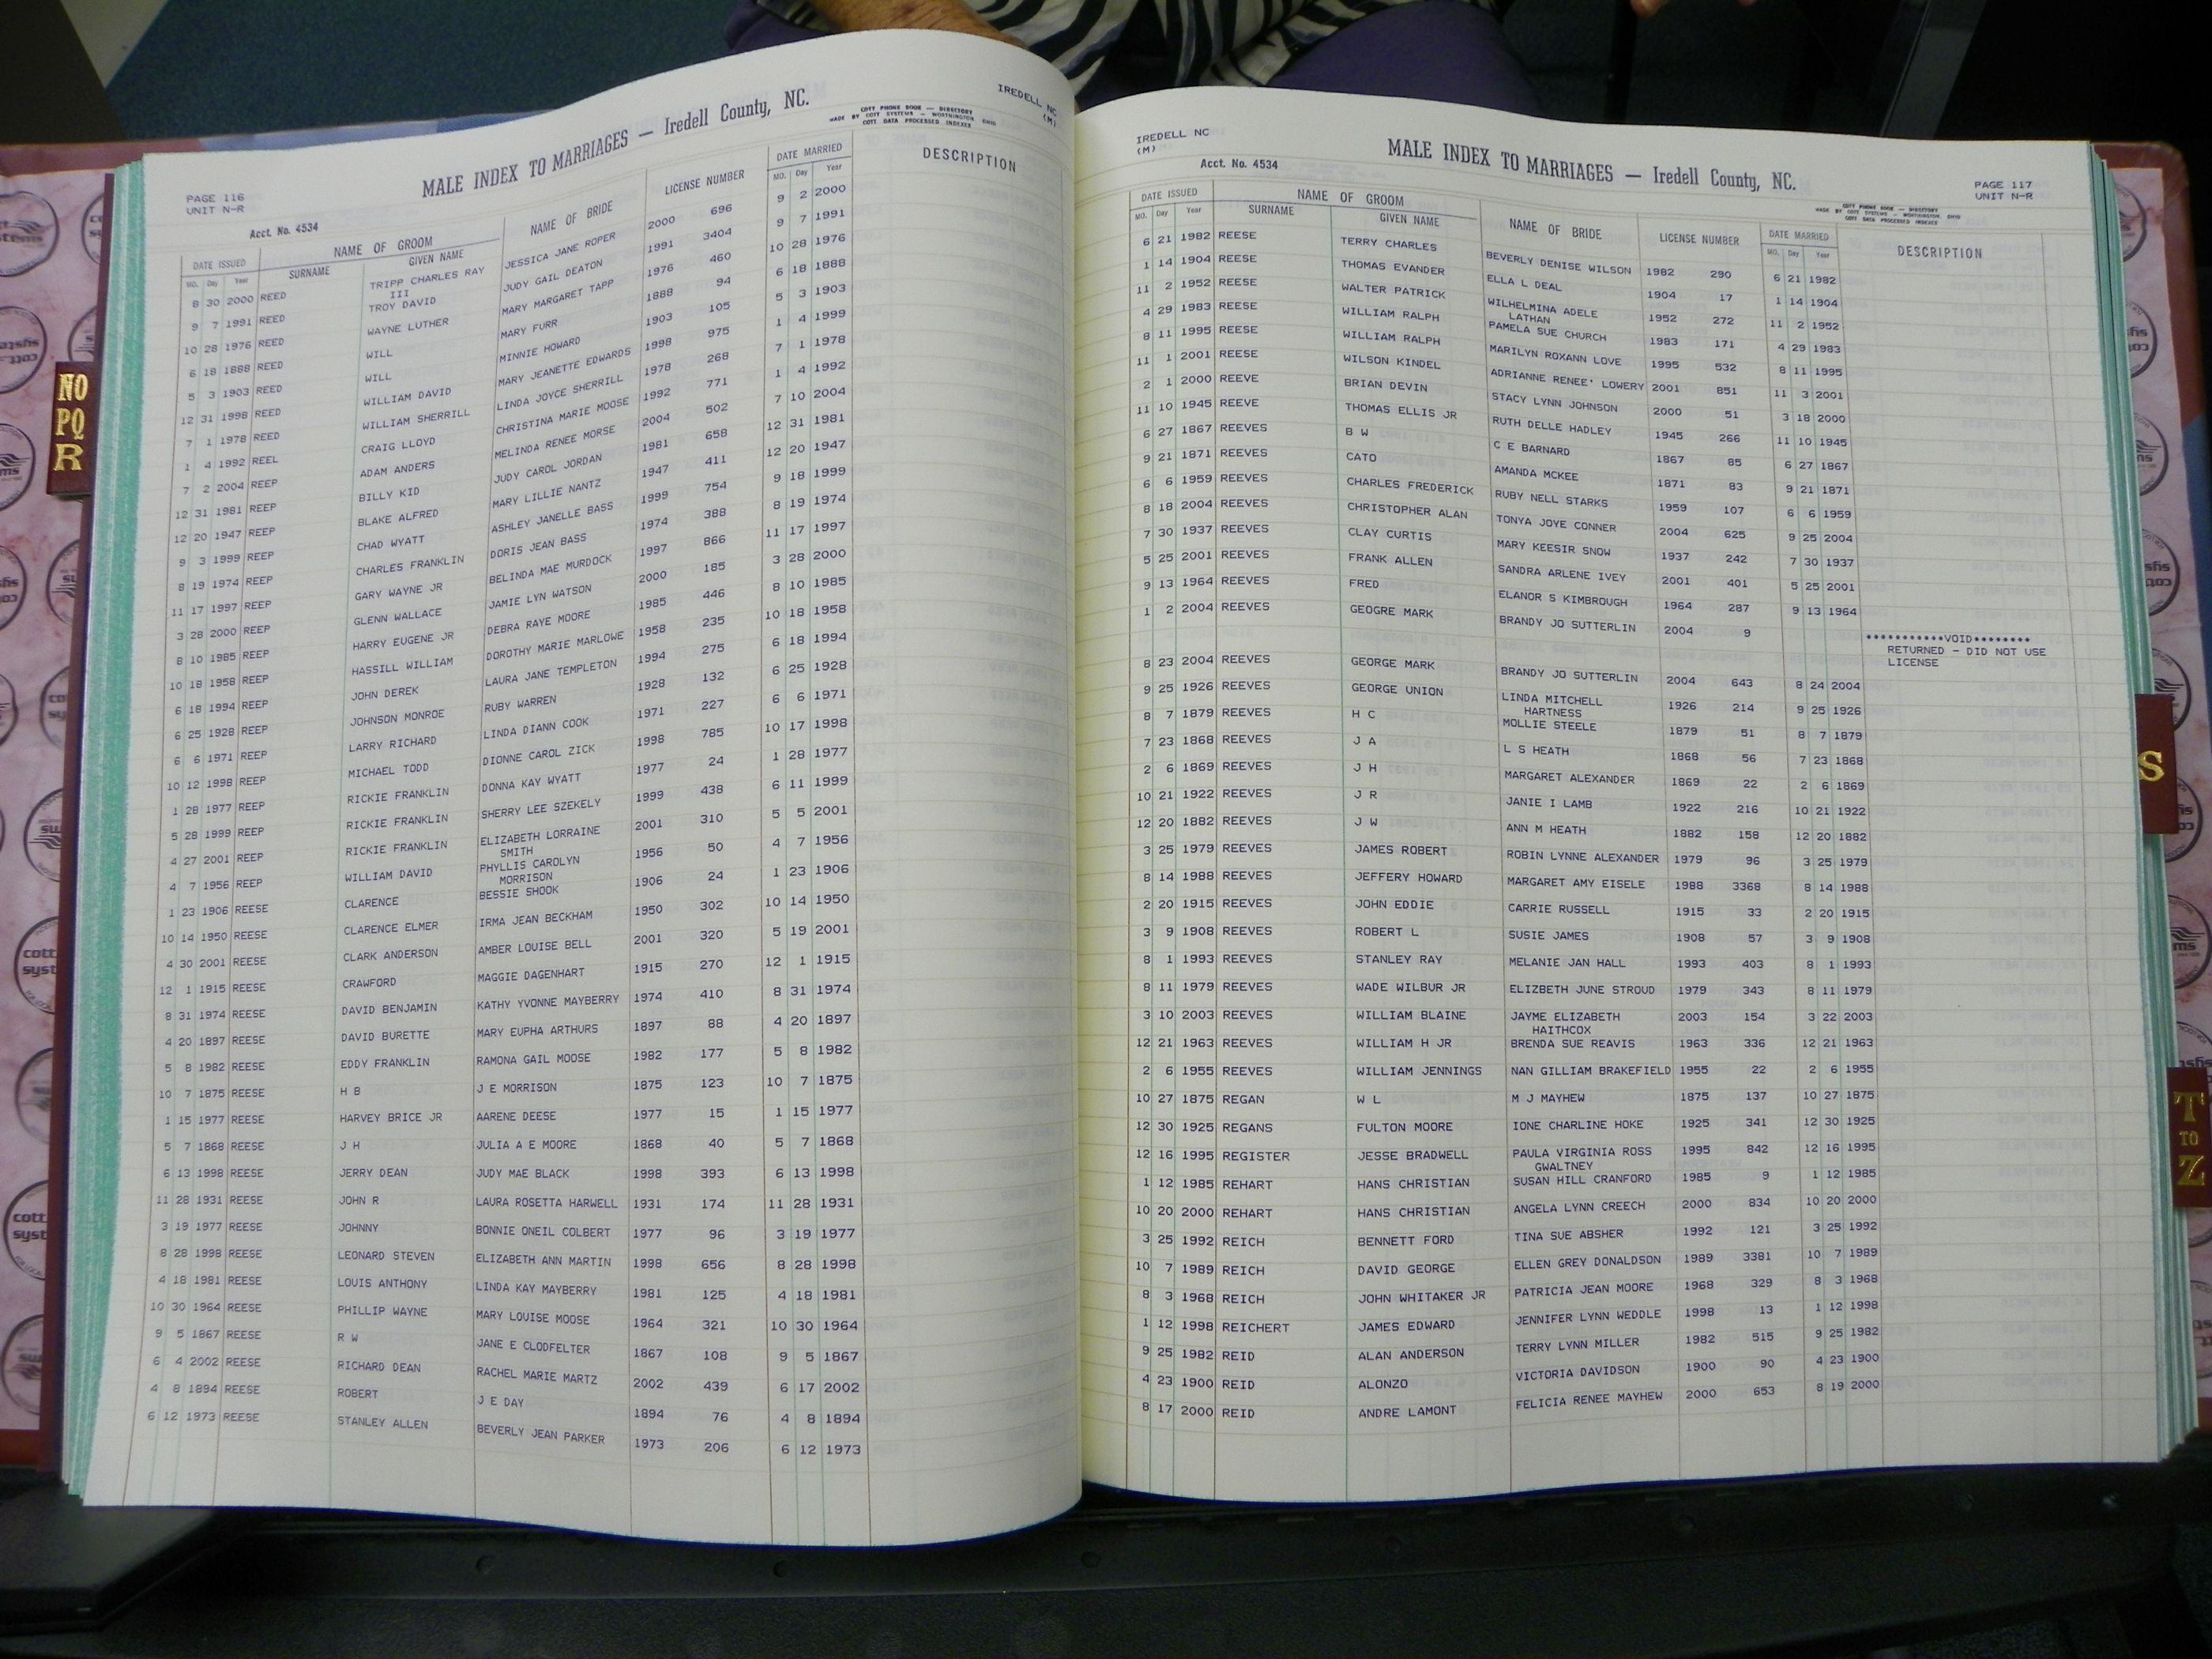 IREDELL NC
(M)
MALE INDEX TO MARRIAGES — Iredell County, NC.
COTT PHONE BOOK — DIRECTORY
MADE BY COTT SYSTEMS — WORTHINGTON, OHIO
COTT DATA PROCESSED INDEXES
PAGE 116
UNIT N-R
Acct. No. 4534
DATE ISSUED NAME OF GROOM NAME OF BRIDE LICENSE NUMBER DATE MARRIED DESCRIPTION
MO. Day Year SURNAME GIVEN NAME MO. Day Year
8 30 2000 REED TRIPP CHARLES RAY JESSICA JANE ROPER 2000 696 9 2 2000
III
9 7 1991 REED TROY DAVID JUDY GAIL DEATON 1991 3404 9 7 1991
10 28 1976 REED WAYNE LUTHER MARY MARGARET TAPP 1976 460 10 28 1976
6 18 1888 REED WILL MARY FURR 1888 94 6 18 1888
5 3 1903 REED WILL MINNIE HOWARD 1903 105 5 3 1903
12 31 1998 REED WILLIAM DAVID MARY JEANETTE EDWARDS 1998 975 1 4 1999
7 1 1978 REED WILLIAM SHERRILL LINDA JOYCE SHERRILL 1978 268 7 1 1978
1 4 1992 REEL CRAIG LLOYD CHRISTINA MARIE MOOSE 1992 771 1 4 1992
7 2 2004 REEP ADAM ANDERS MELINDA RENEE MORSE 2004 502 7 10 2004
12 31 1981 REEP BILLY KID JUDY CAROL JORDAN 1981 658 12 31 1981
12 20 1947 REEP BLAKE ALFRED MARY LILLIE NANTZ 1947 411 12 20 1947
9 3 1999 REEP CHAD WYATT ASHLEY JANELLE BASS 1999 754 9 18 1999
8 19 1974 REEP CHARLES FRANKLIN DORIS JEAN BASS 1974 388 8 19 1974
11 17 1997 REEP GARY WAYNE JR BELINDA MAE MURDOCK 1997 866 11 17 1997
3 28 2000 REEP GLENN WALLACE JAMIE LYN WATSON 2000 185 3 28 2000
8 10 1985 REEP HARRY EUGENE JR DEBRA RAYE MOORE 1985 446 8 10 1985
10 18 1958 REEP HASSILL WILLIAM DOROTHY MARIE MARLOWE 1958 235 10 18 1958
6 18 1994 REEP JOHN DEREK LAURA JANE TEMPLETON 1994 275 6 18 1994
6 25 1928 REEP JOHNSON MONROE RUBY WARREN 1928 132 6 25 1928
6 6 1971 REEP LARRY RICHARD LINDA DIANN COOK 1971 227 6 6 1971
10 12 1998 REEP MICHAEL TODD DIONNE CAROL ZICK 1998 785 10 17 1998
1 28 1977 REEP RICKIE FRANKLIN DONNA KAY WYATT 1977 24 1 28 1977
5 28 1999 REEP RICKIE FRANKLIN SHERRY LEE SZEKELY 1999 438 6 11 1999
4 27 2001 REEP RICKIE FRANKLIN ELIZABETH LORRAINE 2001 310 5 5 2001
SMITH
4 7 1956 REEP WILLIAM DAVID PHYLLIS CAROLYN 1956 50 4 7 1956
MORRISON
1 23 1906 REESE CLARENCE BESSIE SHOOK 1906 24 1 23 1906
10 14 1950 REESE CLARENCE ELMER IRMA JEAN BECKHAM 1950 302 10 14 1950
4 30 2001 REESE CLARK ANDERSON AMBER LOUISE BELL 2001 320 5 19 2001
12 1 1915 REESE CRAWFORD MAGGIE DAGENHART 1915 270 12 1 1915
8 31 1974 REESE DAVID BENJAMIN KATHY YVONNE MAYBERRY 1974 410 8 31 1974
4 20 1897 REESE DAVID BURETTE MARY EUPHA ARTHURS 1897 88 4 20 1897
5 8 1982 REESE EDDY FRANKLIN RAMONA GAIL MOOSE 1982 177 5 8 1982
10 7 1875 REESE H B J E MORRISON 1875 123 10 7 1875
1 15 1977 REESE HARVEY BRICE JR AARENE DEESE 1977 15 1 15 1977
5 7 1868 REESE J H JULIA A E MOORE 1868 40 5 7 1868
6 13 1998 REESE JERRY DEAN JUDY MAE BLACK 1998 393 6 13 1998
11 28 1931 REESE JOHN R LAURA ROSETTA HARWELL 1931 174 11 28 1931
3 19 1977 REESE JOHNNY BONNIE ONEIL COLBERT 1977 96 3 19 1977
8 28 1998 REESE LEONARD STEVEN ELIZABETH ANN MARTIN 1998 656 8 28 1998
4 18 1981 REESE LOUIS ANTHONY LINDA KAY MAYBERRY 1981 125 4 18 1981
10 30 1964 REESE PHILLIP WAYNE MARY LOUISE MOOSE 1964 321 10 30 1964
9 5 1867 REESE R W JANE E CLODFELTER 1867 108 9 5 1867
6 4 2002 REESE RICHARD DEAN RACHEL MARIE MARTZ 2002 439 6 17 2002
4 8 1894 REESE ROBERT J E DAY 1894 76 4 8 1894
6 12 1973 REESE STANLEY ALLEN BEVERLY JEAN PARKER 1973 206 6 12 1973
IREDELL NC
(M)
Acct. No. 4534
MALE INDEX TO MARRIAGES — Iredell County, NC.
PAGE 117
UNIT N-R
COTT PHONE BOOK — DIRECTORY
MADE BY COTT SYSTEMS — WORTHINGTON, OHIO
COTT DATA PROCESSED INDEXES
DATE ISSUED NAME OF GROOM NAME OF BRIDE LICENSE NUMBER DATE MARRIED DESCRIPTION
MO. Day Year SURNAME GIVEN NAME MO. Day Year
6 21 1982 REESE TERRY CHARLES BEVERLY DENISE WILSON 1982 290 6 21 1982
1 14 1904 REESE THOMAS EVANDER ELLA L DEAL 1904 17 1 14 1904
11 2 1952 REESE WALTER PATRICK WILHELMINA ADELE 1952 272 11 2 1952
LATHAN
4 29 1983 REESE WILLIAM RALPH PAMELA SUE CHURCH 1983 171 4 29 1983
8 11 1995 REESE WILLIAM RALPH MARILYN ROXANN LOVE 1995 532 8 11 1995
11 1 2001 REESE WILSON KINDEL ADRIANNE RENEE' LOWERY 2001 851 11 3 2001
2 1 2000 REEVE BRIAN DEVIN STACY LYNN JOHNSON 2000 51 3 18 2000
11 10 1945 REEVE THOMAS ELLIS JR RUTH DELLE HADLEY 1945 266 11 10 1945
6 27 1867 REEVES B W C E BARNARD 1867 85 6 27 1867
9 21 1871 REEVES CATO AMANDA MCKEE 1871 83 9 21 1871
6 6 1959 REEVES CHARLES FREDERICK RUBY NELL STARKS 1959 107 6 6 1959
8 18 2004 REEVES CHRISTOPHER ALAN TONYA JOYE CONNER 2004 625 9 25 2004
7 30 1937 REEVES CLAY CURTIS MARY KEESIR SNOW 1937 242 7 30 1937
5 25 2001 REEVES FRANK ALLEN SANDRA ARLENE IVEY 2001 401 5 25 2001
9 13 1964 REEVES FRED ELANOR S KIMBROUGH 1964 287 9 13 1964
1 2 2004 REEVES GEOGRE MARK BRANDY JO SUTTERLIN 2004 9
***********VOID********
RETURNED - DID NOT USE
LICENSE
8 23 2004 REEVES GEORGE MARK BRANDY JO SUTTERLIN 2004 643 8 24 2004
9 25 1926 REEVES GEORGE UNION LINDA MITCHELL 1926 214 9 25 1926
HARTNESS
8 7 1879 REEVES H C MOLLIE STEELE 1879 51 8 7 1879
7 23 1868 REEVES J A L S HEATH 1868 56 7 23 1868
2 6 1869 REEVES J H MARGARET ALEXANDER 1869 22 2 6 1869
10 21 1922 REEVES J R JANIE I LAMB 1922 216 10 21 1922
12 20 1882 REEVES J W ANN M HEATH 1882 158 12 20 1882
3 25 1979 REEVES JAMES ROBERT ROBIN LYNNE ALEXANDER 1979 96 3 25 1979
8 14 1988 REEVES JEFFERY HOWARD MARGARET AMY EISELE 1988 3368 8 14 1988
2 20 1915 REEVES JOHN EDDIE CARRIE RUSSELL 1915 33 2 20 1915
3 9 1908 REEVES ROBERT L SUSIE JAMES 1908 57 3 9 1908
8 1 1993 REEVES STANLEY RAY MELANIE JAN HALL 1993 403 8 1 1993
8 11 1979 REEVES WADE WILBUR JR ELIZBETH JUNE STROUD 1979 343 8 11 1979
3 10 2003 REEVES WILLIAM BLAINE JAYME ELIZABETH 2003 154 3 22 2003
HAITHCOX
12 21 1963 REEVES WILLIAM H JR BRENDA SUE REAVIS 1963 336 12 21 1963
2 6 1955 REEVES WILLIAM JENNINGS NAN GILLIAM BRAKEFIELD 1955 22 2 6 1955
10 27 1875 REGAN W L M J MAYHEW 1875 137 10 27 1875
12 30 1925 REGANS FULTON MOORE IONE CHARLINE HOKE 1925 341 12 30 1925
12 16 1995 REGISTER JESSE BRADWELL PAULA VIRGINIA ROSS 1995 842 12 16 1995
GWALTNEY
1 12 1985 REHART HANS CHRISTIAN SUSAN HILL CRANFORD 1985 9 1 12 1985
10 20 2000 REHART HANS CHRISTIAN ANGELA LYNN CREECH 2000 834 10 20 2000
3 25 1992 REICH BENNETT FORD TINA SUE ABSHER 1992 121 3 25 1992
10 7 1989 REICH DAVID GEORGE ELLEN GREY DONALDSON 1989 3381 10 7 1989
8 3 1968 REICH JOHN WHITAKER JR PATRICIA JEAN MOORE 1968 329 8 3 1968
1 12 1998 REICHERT JAMES EDWARD JENNIFER LYNN WEDDLE 1998 13 1 12 1998
9 25 1982 REID ALAN ANDERSON TERRY LYNN MILLER 1982 515 9 25 1982
4 23 1900 REID ALONZO VICTORIA DAVIDSON 1900 90 4 23 1900
8 17 2000 REID ANDRE LAMONT FELICIA RENEE MAYHEW 2000 653 8 19 2000
NO
PQ
R
S
T
TO
Z